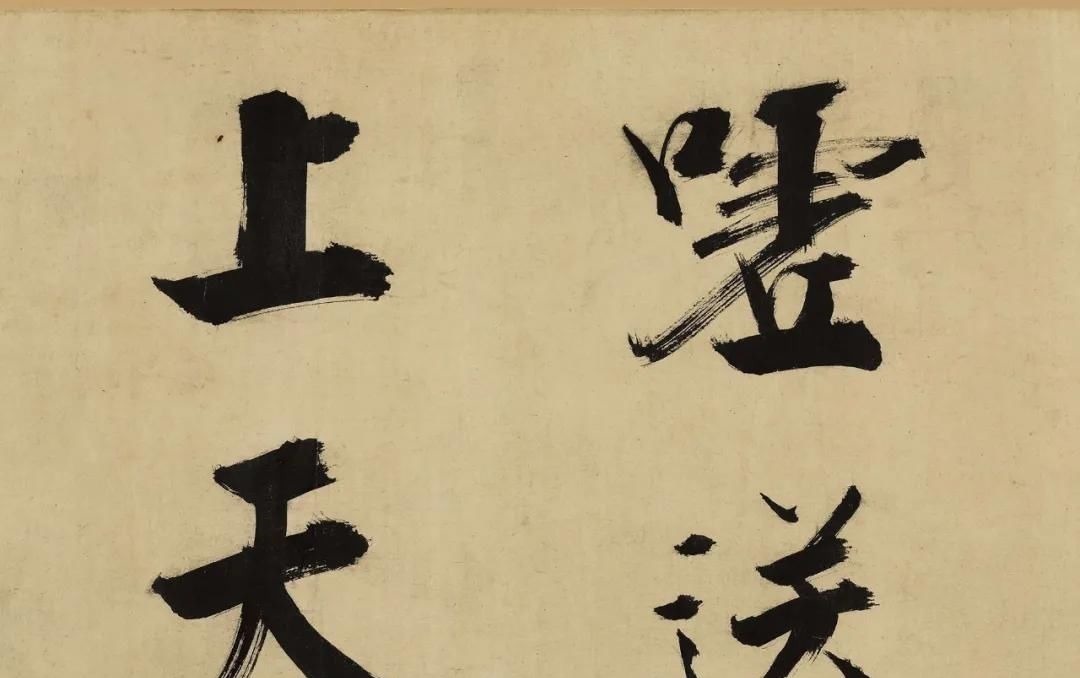 嗟送
上天